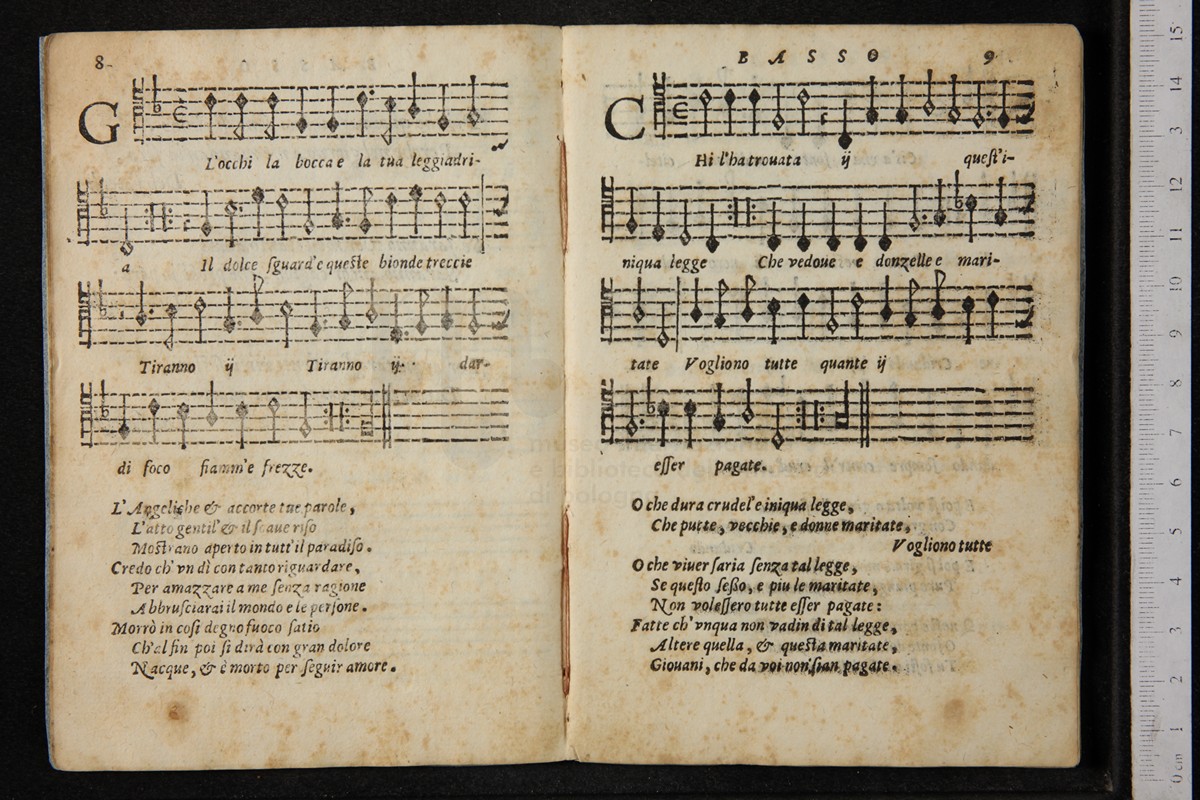 8
G
L'occhi la bocca e la tua leggiadri-
a Il dolce ſguard'e queſte bionde treccie
Tiranno ij Tiranno ij. dar-
di foco fiamm'e frezze.
L'Angeliche & accorte tue parole,
L'atto gentil' & il ſoaue riſo
Moſtrano aperto in tutt'il paradiſo.
Credo ch'vn dì con tanto riguardare,
Per amazzare a me ſenza ragione
Abbruſciarai il mondo e le perſone.
Morrò in coſi degno fuoco ſatio
Ch'al fin poi ſi dirà con gran dolore
Nacque, & è morto per ſeguir amore.
BASSO 9
C
Hi l'ha trouata ij queſt'i-
niqua legge Che vedoue e donzelle e mari-
tate Vogliono tutte quante ij
eſſer pagate.
O che dura crudel'e iniqua legge,
Che putte, vecchie, e donne maritate,
Vogliono tutte
O che viuer ſaria ſenza tal legge,
Se queſto ſeßo, e piu le maritate,
Non voleſſero tutte eſſer pagate:
Fatte ch'vnqua non vadin di tal legge,
Altere quella, & queſta maritate,
Giouani, che da voi non ſian pagate.
0 cm 1 2 3 4 5 6 7 8 9 10 11 12 13 14 15